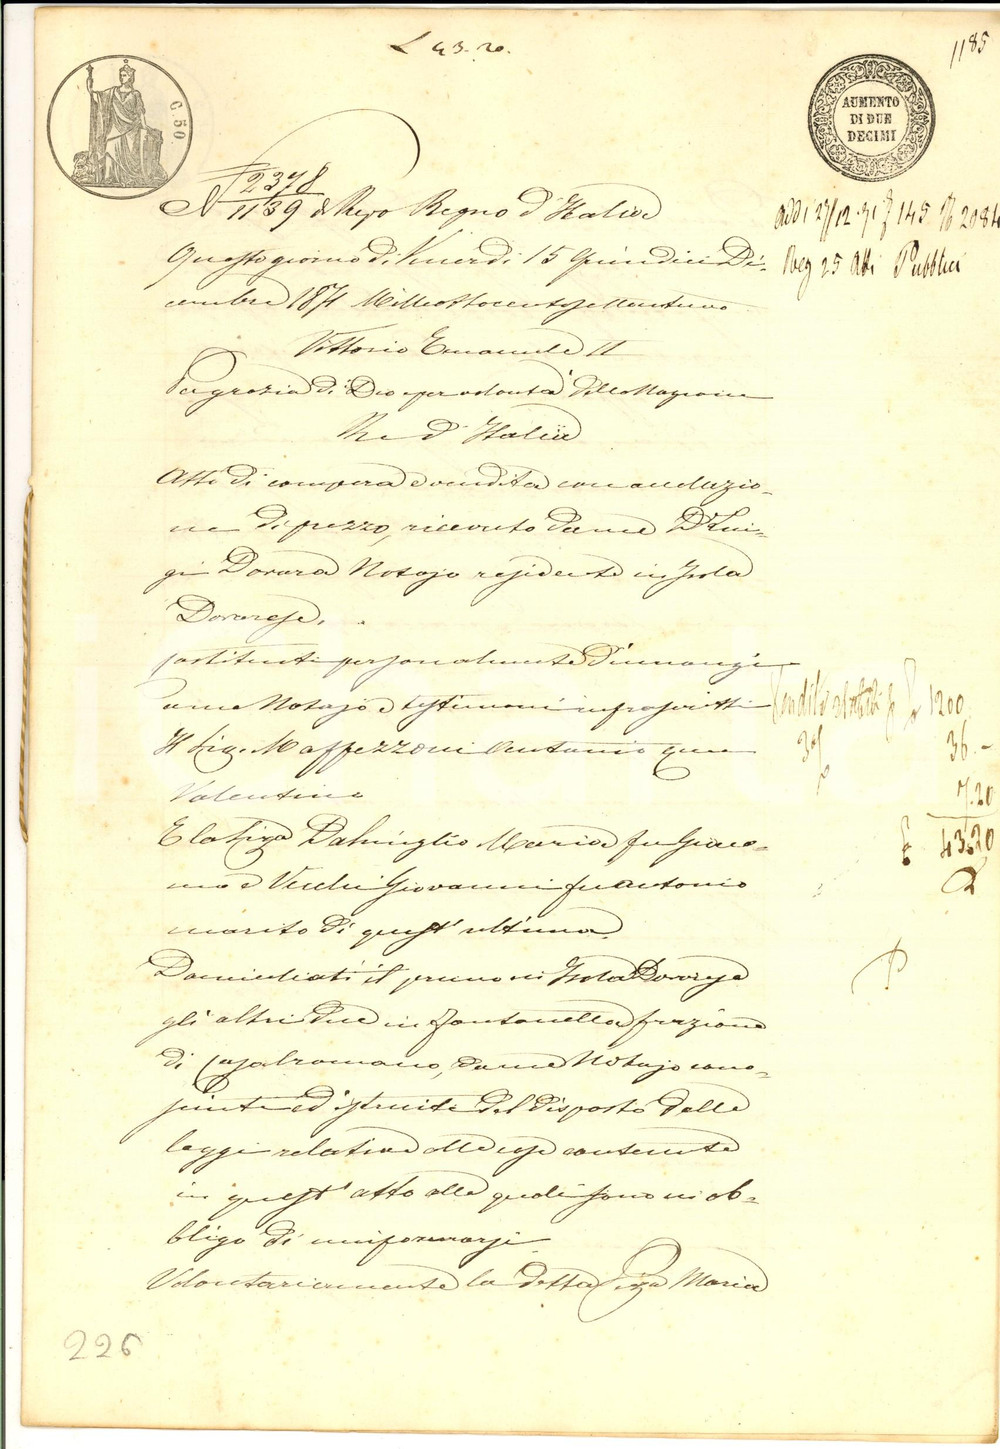 L 43. 20.
1185
C. 50
AUMENTO
DI DUE
DECIMI
N 2378
1139 di Rep.o Regno d'Italia
Addì 27/12. 71 145 N 2084
Reg 25 Atti Pubblici
Questo giorno di Venerdì 15 Quindici Di=
cembre 1871 Milleottocentosettantuno
Vittorio Emanuele II
Per grazia di Dio e per volontà della Nazione
Re d'Italia
Atto di compera e vendita con
ne di prezzo, ricevuto da me D.r Lui=
gi Dovara Notajo residente in Isola
Dovarese.
Costituiti personalmente dinnanzi
a me Notajo e testimoni infrascritti
1200
Il Sig. Maffezzoni Antonio qum
3%
36. -
Valentino
7.20
E la Sig.a Dalmiglio Maria fu Giaco=
43.20
mo e Vecchi Giovanni fu Antonio
marito di quest'ultima
Domiciliati il primo in Isola Dovarese
gli altri due in Fontanella frazione
di Casalromano, da me Notajo cono=
sciuti ed istruiti del disposto delle
leggi relative alle cose contenute
in quest'atto alle quali sono in ob=
bligo di uniformarsi
Volontariamente la detta Sig.a Maria
226